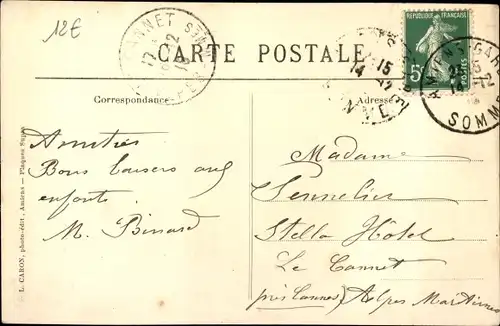 12€
CARTE POSTALE
RÉPUBLIQUE FRANÇAISE
5c
POSTES
AMIENS GARE
SOMME
Correspondance
Adresse
Amitiés
Bons baisers aux
enfants.
M. Binard
Madame
Sennelier
Stella Hôtel
Le Cannet
près Cannes) Alpes Maritimes
L. CARON, photo-édit., Amiens — Plaques